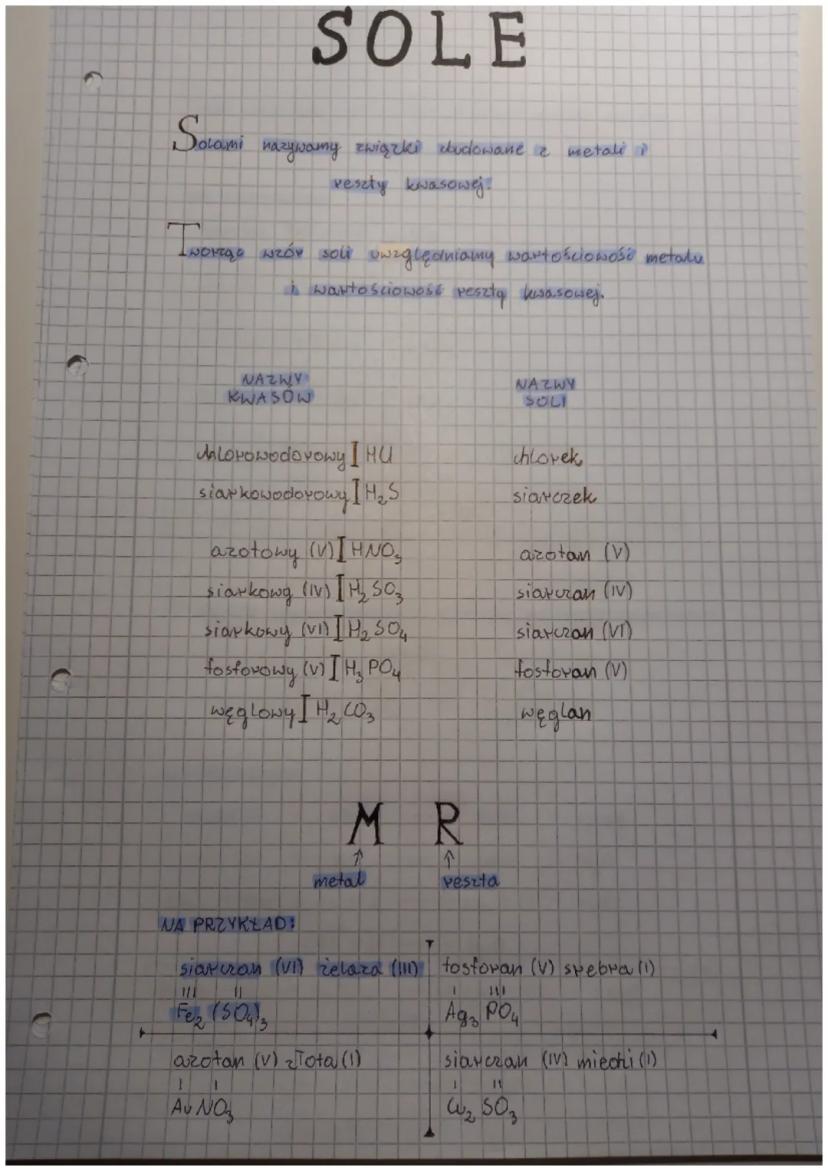 SOLE
Solami nazywamy związki zbudowane z metali i
reszty kwasowej.
Tworząc wzór soli uwzględniamy wartościowość metalu
i wartościowość reszty kwasowej.
NAZWY NAZWY
KWASÓW SOLI
chlorowodorowy I HCl chlorek
siarkowodorowy I H₂S siarczek
azotowy (V) I HNO₃ azotan (V)
siarkowy (IV) I H₂SO₃ siarczan (IV)
siarkowy (VI) I H₂SO₄ siarczan (VI)
fosforowy (V) I H₃PO₄ fosforan (V)
węglowy I H₂CO₃ węglan
M R
↑ ↑
metal reszta
NA PRZYKŁAD:
siarczan (VI) żelaza (III) fosforan (V) srebra (I)
III II I III
Fe₂(SO₄)₃ Ag₃PO₄
azotan (V) złota (I) siarczan (IV) miedzi (I)
I I I II
AuNO₃ Cu₂SO₃